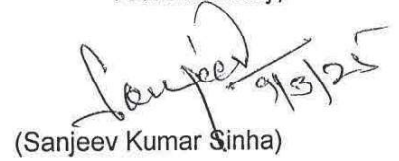 Sanjeev 9/3/25
(Sanjeev Kumar Sinha)